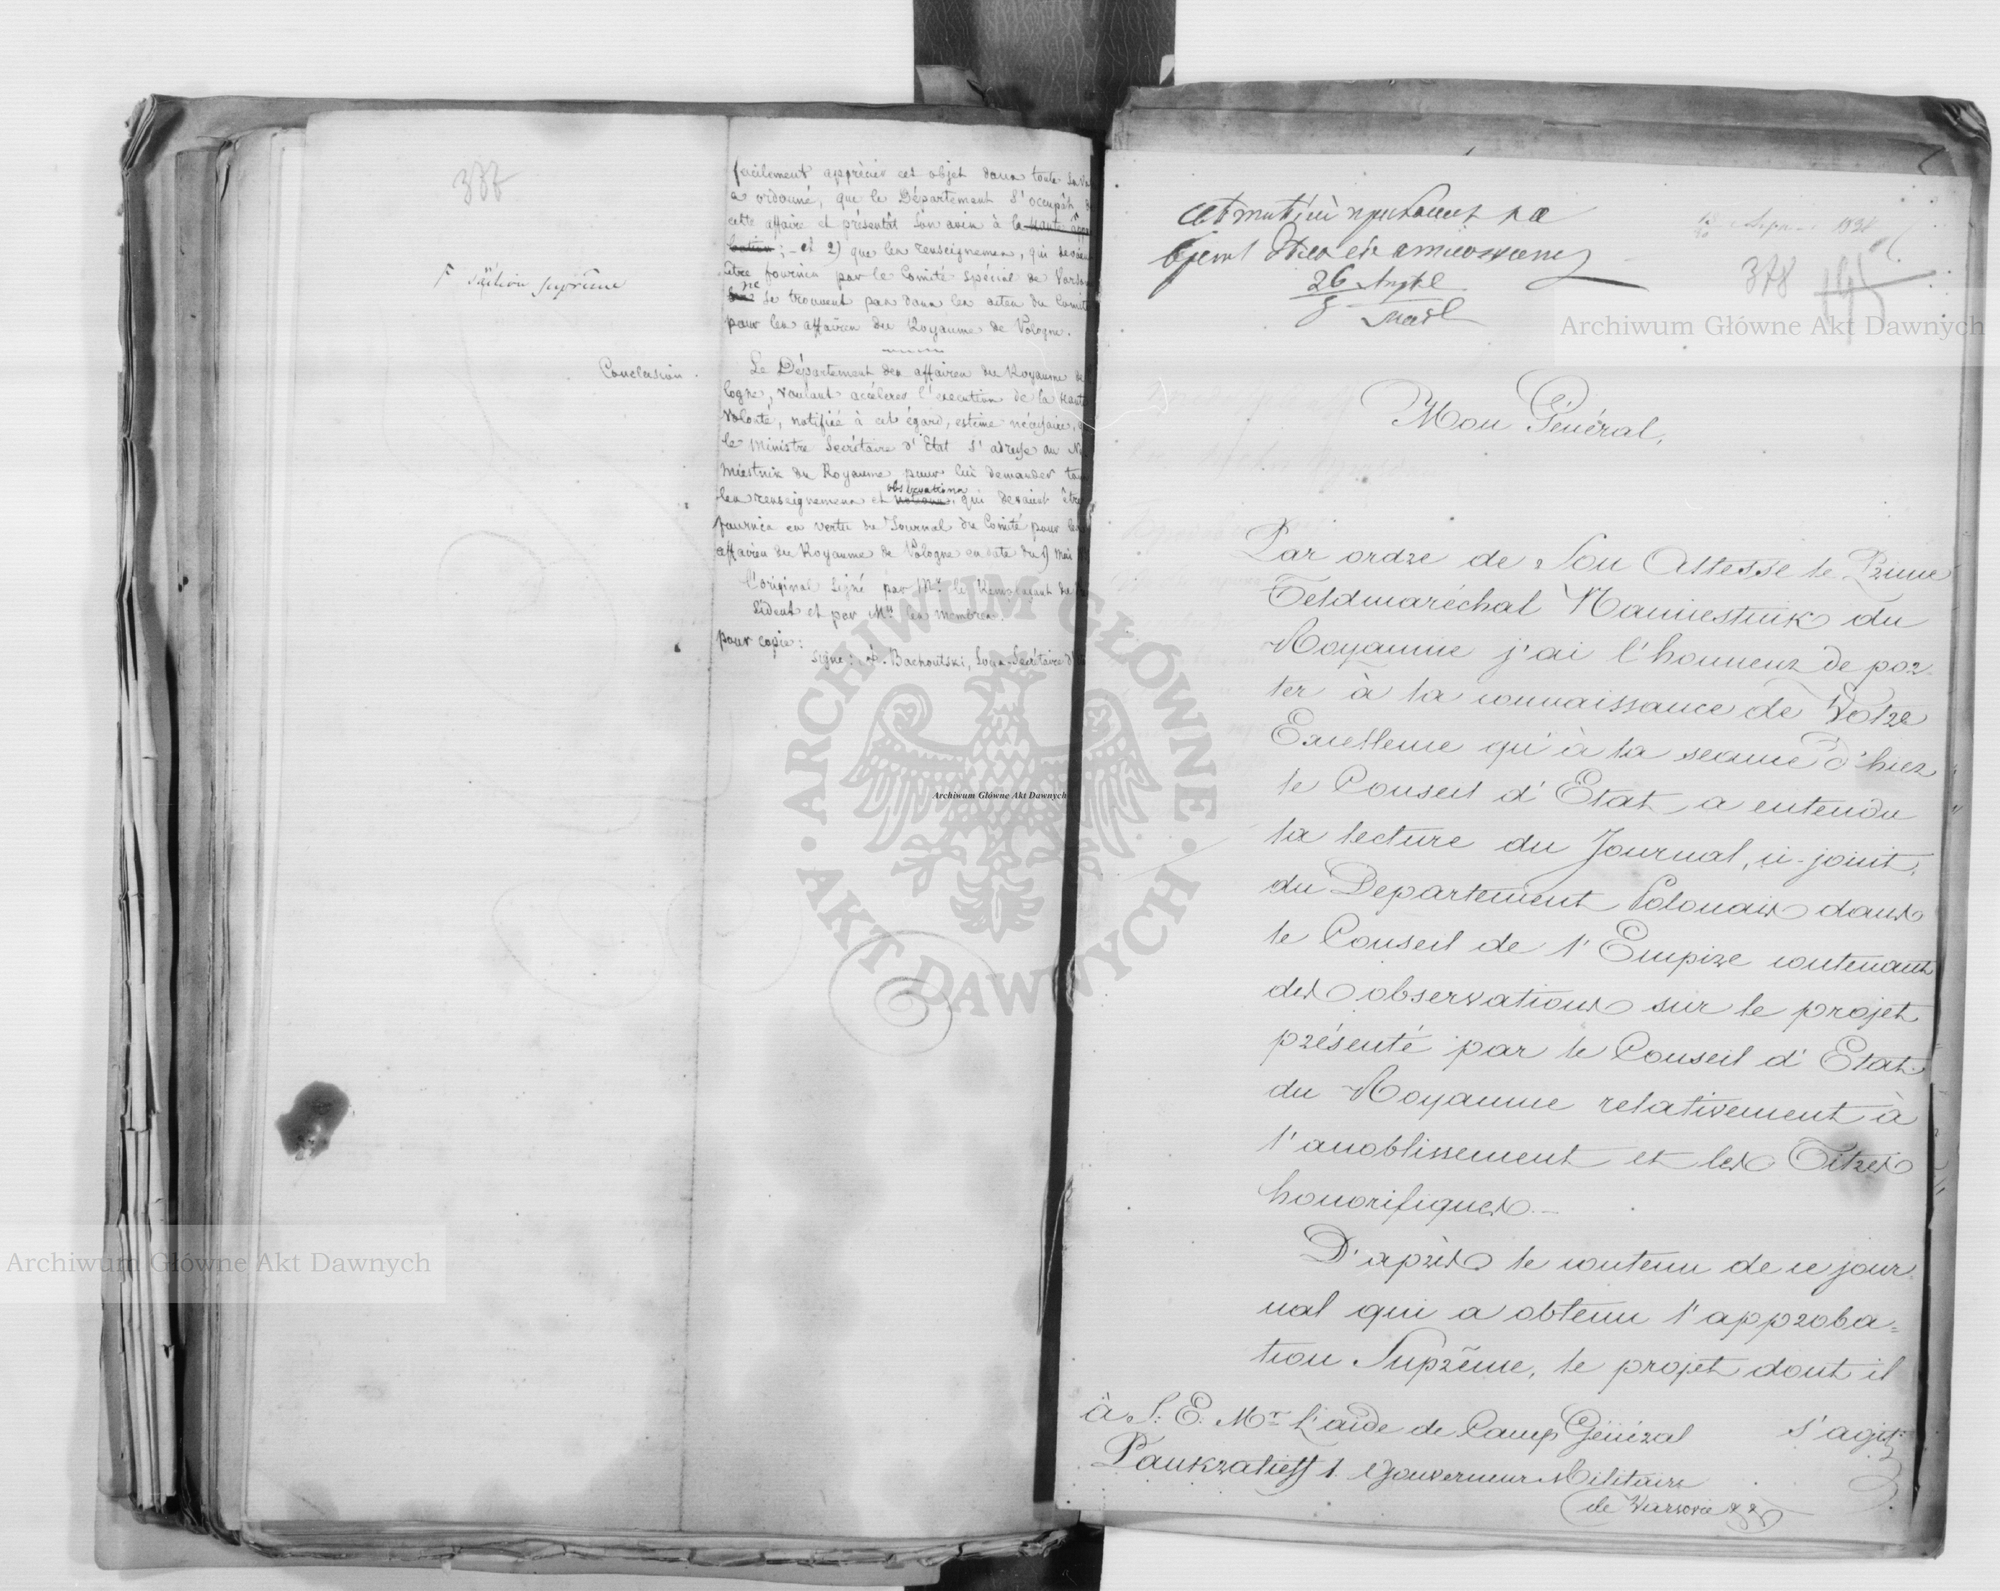 facilement apprécier cet objet dans toute sa
a ordonné, que le Département s'occupât de
cette affaire et présentât son avis à la Haute appro
bation; – et 2) que les renseignemens, qui devaient
être fournis par le Comité spécial de Varso
vie ne se trouvent pas dans les actes du Comité
pour les affaires du Royaume de Pologne.
F Sanction Suprême
Conclusion.
Le Département des affaires du Royaume de
logne, voulant accélérer l'exécution de la Haute
Volonté, notifiée à cet égard, estime nécessaire, q
le Ministre Secrétaire d'Etat s'adresse au Na
miestnik du Royaume pour lui demander tous
les renseignemens et notions observations, qui devaient être
fournis en vertu du Journal du Comité pour les
affaires du Royaume de Pologne en date du 9 Mai
L'original signé par Mr. le Remplaçant du
sident et par Mrs les membres.
pour copie:
signé: Bachoutski, Sous-Secrétaire d'
378
26
Mon Général,
Par ordre de Son Altesse le Prince
Feldmaréchal Namiestnik du
Royaume j'ai l'honneur de por-
ter à la connaissance de Votre
Excellence qu'à la seance d'hier
le Conseil d'Etat a entendu
la lecture du Journal, ci-joint,
du Departement Polonais dans
le Conseil de l'Empire contenant
des observations sur le projet
présenté par le Conseil d'Etat
du Royaume relativement à
l'anoblissement et les Titres
honorifiques.–
D'après le contenu de ce jour
nal qui a obtenu l'approba=
tion Suprême, le projet dont il
s'agit
à S. E. Mr. l'aide de Camp Général
Pankratieff 1. Gouverneur Militaire
de Varsovie
Archiwum Główne Akt Dawnych
Archiwum Główne Akt Dawnych
Archiwum Główne Akt Dawnych
ARCHIWUM GŁÓWNE · AKT DAWNYCH ·